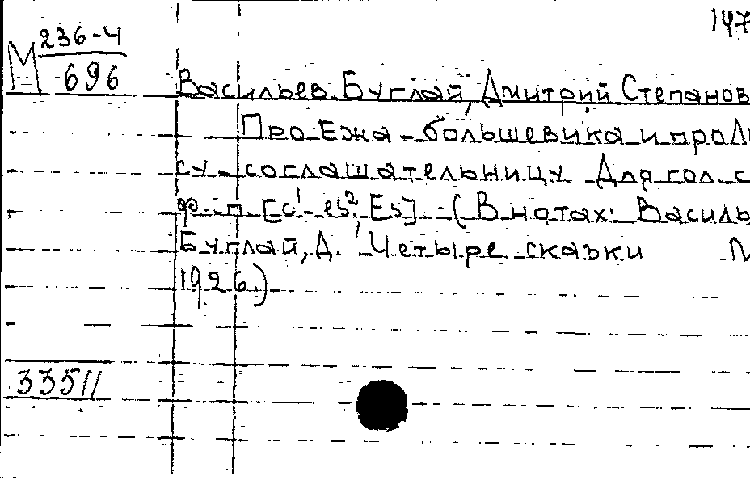 147
М 236-4
696
Васильев-Буглай, Дмитрий Степанов
Про Ежа-большевика и про Ли
су-соглашательницу Для гол. с
ф-п. [c¹-es², Es] (В нотах: Василь
Буглай, Д. Четыре сказки
1926.)
33511